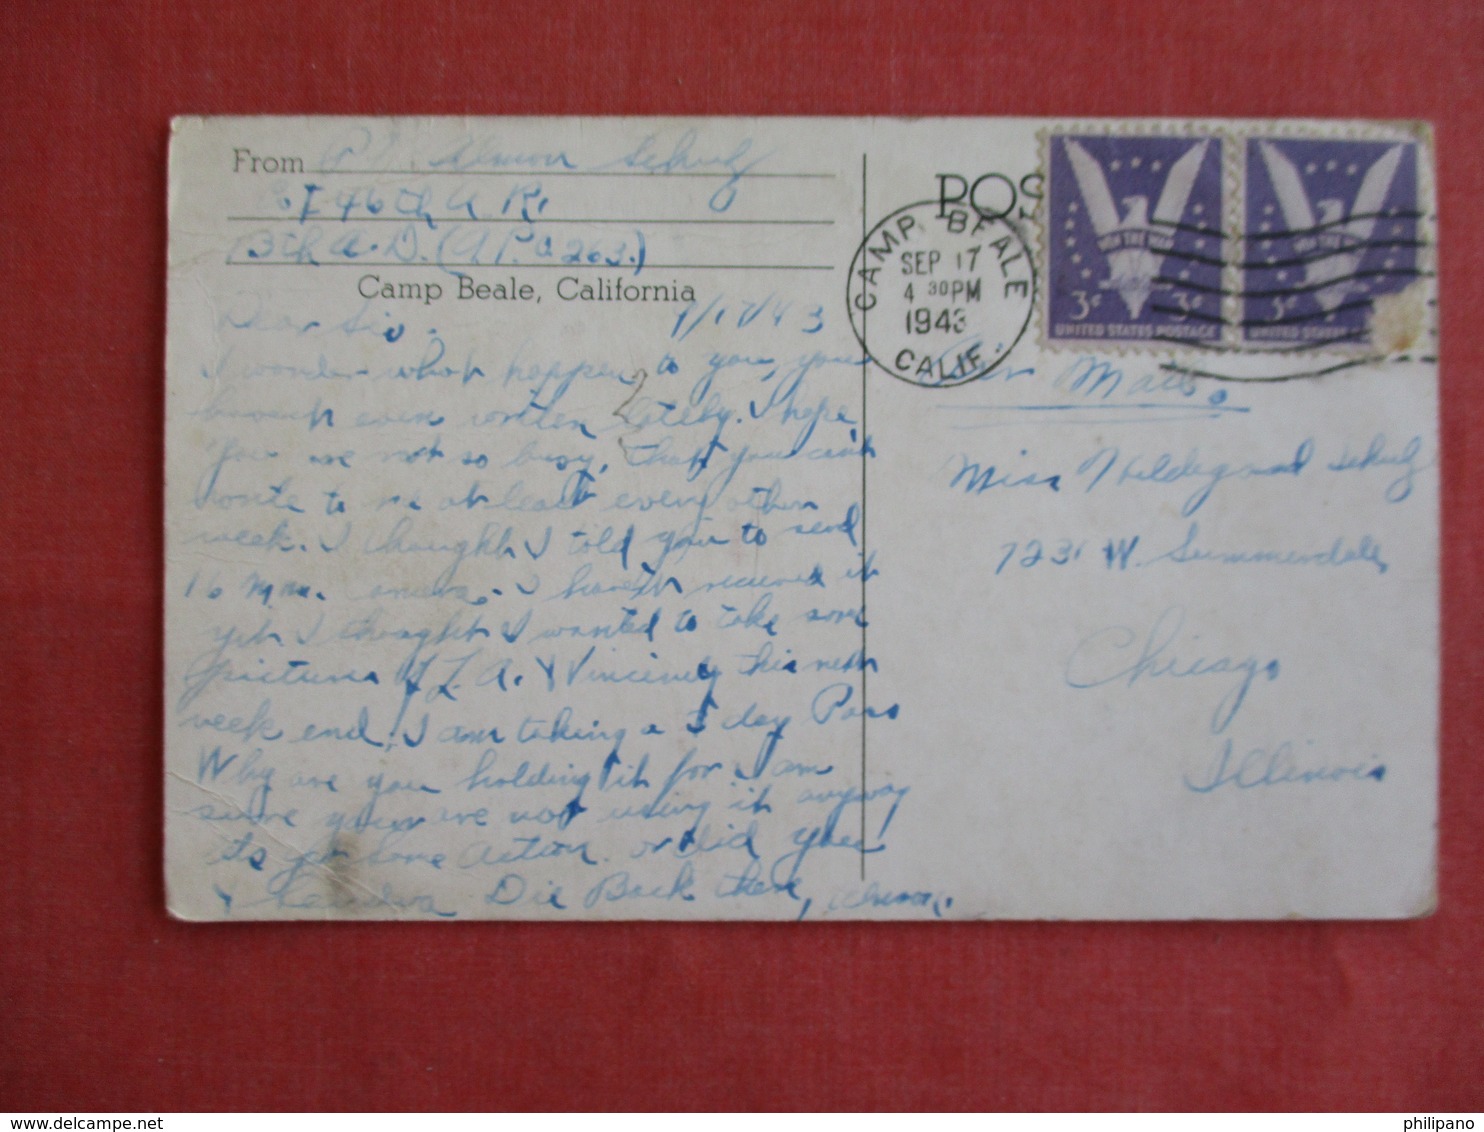 From Elmer Schulz
Co I 46th A. R.
13th A. D. (A. P. O 263.)
Camp Beale, California
Dear Sis, 9/17/43
I wonder what happen to you, you
haven't even written lately. I hope
you are not so busy, that you can't
write to me at least every other
week. I thought I told you to send
16 mm. Camera. I haven't received it
yet I thought I wanted to take some
pictures of L. A. & Vincenity this next
week end. I am taking a 3 day Pass
Why are you holding it for I am
sure you are not using it anyway
to get some action. or did you
& Camera Die Back there, Elmer.
POS
CAMP BEALE
SEP 17
4 30 PM
1943
CALIF.
WIN THE WAR
3¢ 3¢
UNITED STATES POSTAGE
WIN THE
3¢
UNITED STATES
Air Mail.
Miss Hildegard Schulz
7231 W. Summerdale
Chicago
Illinois
www.delcampe.net
philipano